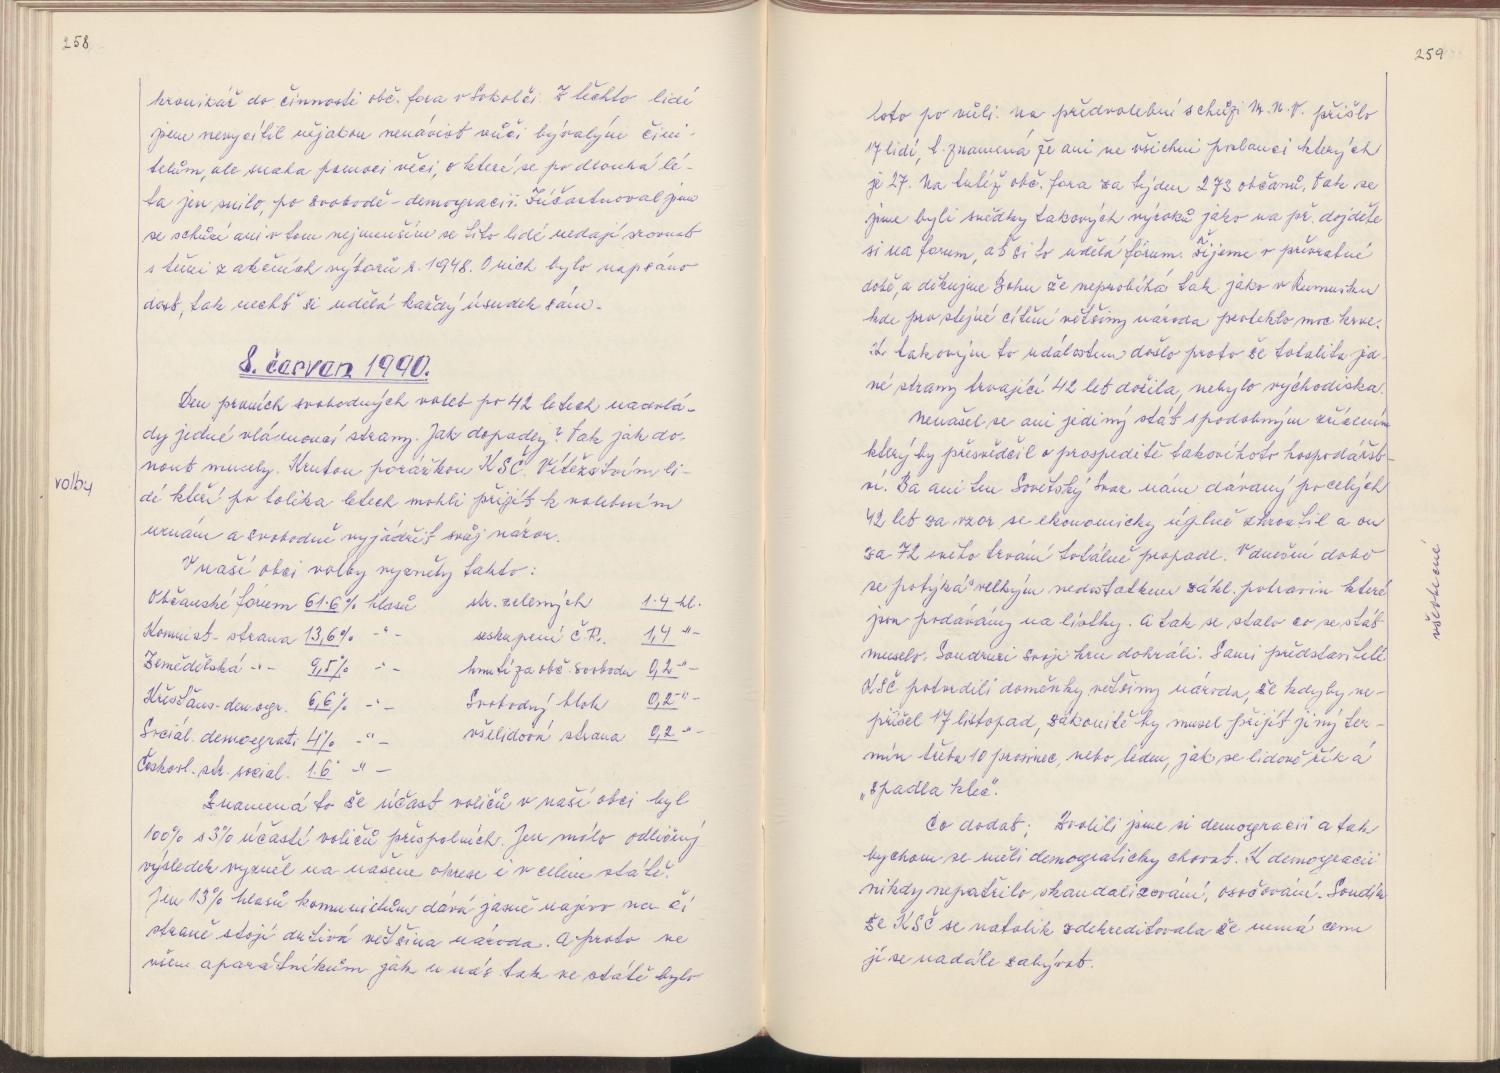 258
kronikář do činnosti obč. fora v Sokolči. Z těchto lidí
jsem nevycítil nějakou nenávist vůči bývalým čini-
telům, ale snaha pomoci věci, o které se po dlouhá lé-
ta jen snilo, po svobodě - demogracii. Zúčastnoval jsem
se schůzí ani v tom nejmenším se tito lidé nedají srovnat
s těmi z akčních výborů r. 1948. O nich bylo napsáno
dost, tak nechť si udělá každý úsudek sám.
8. červan 1990.
Den prvních svobodných voleb po 42 letech nadvlá-
dy jedné vládnoucí strany. Jak dopadly? Tak jak do-
nout musely. Krutou porážkou KSČ. Vítězstvím li-
volby
dé kteří po tolika letech mohli přijít k volebním
urnám a svobodně vyjádřit svůj názor.
V naší obci volby vyzněly takto:
Občanské fórum 61.6% hlasů str. zelených 1.4 hl.
Komnist- strana 13,6% -"- seskupení Č 1,4 "-
Zemědělská -"- 9,5% -"- hnutí za obč. svobodu 0,2 -"-
Křesťans-demogr. 6,6% -"- Svobodný blok 0,2 -"-
Sociál. demograti 4% -"- všelidová strana 0,2 "-
Českosl. str. social. 1.6 -"-
Znamená to še účast voličů v naší obci byl
100% s 3% účastí voličů přespolních. Jen málo odlišný
výsledek vyzněl na našem okrese i v celém státě.
Jen 13% hlasů komunistům dává jasně najevo na čí
straně stojí drtivá většina národa. A proto ne
všem aparátníkům jak u nás tak ve státě bylo
259
toto po vůli. na předvolební schůzi M.N.V. přišlo
17 lidí, t. znamená že ani ne všichni poslanci kterých
je 27. Na tutéž obč. fora za týden 273 občanů, tak se
jsme byli svědky takových výroků jako na př. dojděte
si na forum, ať si to udělá fórum. Žijeme v převratné
době, a děkujme Bohu že neprobíhá tak jako v Rumusku
kde pro stejné cítění většiny národa proteklo moc krve.
K takovým to událostem došlo proto še totalita jd-
né strany trvající 42 let dožila, nebylo východiska.
Nenašel se ani jediný stát s podobným zřízením
který by přesvědčil o prospeditě takovíhoto hospodářst-
ví. Ba ani ten Sovětský Svaz nám dávaný po celých
42 let za vzor se ekonomicky úplně zhroutil a on
za 72 svého trvání totálně propadl. V dnešní době
se potýká s velkým nedostatkem zákl. potravin které
jsou podávány na lístky. A tak se stalo co se stát
muselo. Soudruzi svoji hru dohráli. Sami představitelé
KSČ potvrdili doměnky většiny národa, še kdyby ne-
přišel 17 listopad, zákonitě by musel přijít jiný ter-
mín třeba 10 prosinec, nebo leden, jak se lidově říká
„spadla klec".
Co dodat; Zvolili jsme si demogracii a tak
bychom se měli demograticky chovat. K demogracii
nikdy nepatřilo, skandalizování, osočování. Soudím
še KSČ se natolik zdekreditovala še nemá cenu
jí se nadále zabývat.
všeobecné